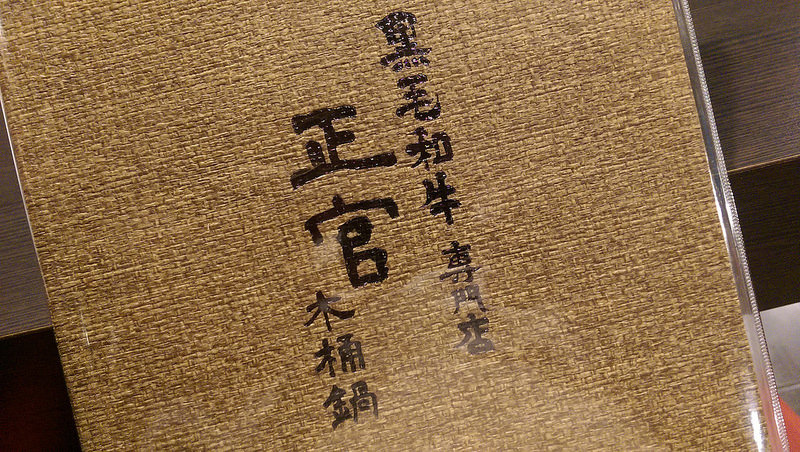 黒毛和牛專門店
正官木桶鍋